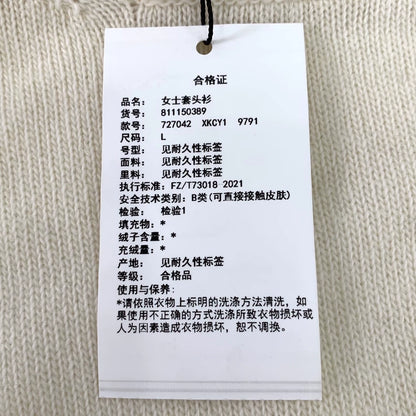 合格证
品名： 女士套头衫
货号： 811150389
款号： 727042 XKCY1 9791
尺码： L
号型： 见耐久性标签
面料： 见耐久性标签
里料： 见耐久性标签
执行标准： FZ/T73018-2021
安全技术类别： B类(可直接接触皮肤)
检验： 检验1
填充物： *
绒子含量： *
充绒量： *
产地： 见耐久性标签
等级： 合格品
使用与保养：
*请依照衣物上标明的洗涤方法清洗，如
果使用不正确的方式洗涤所致衣物损坏或
人为因素造成衣物损坏，恕不调换。